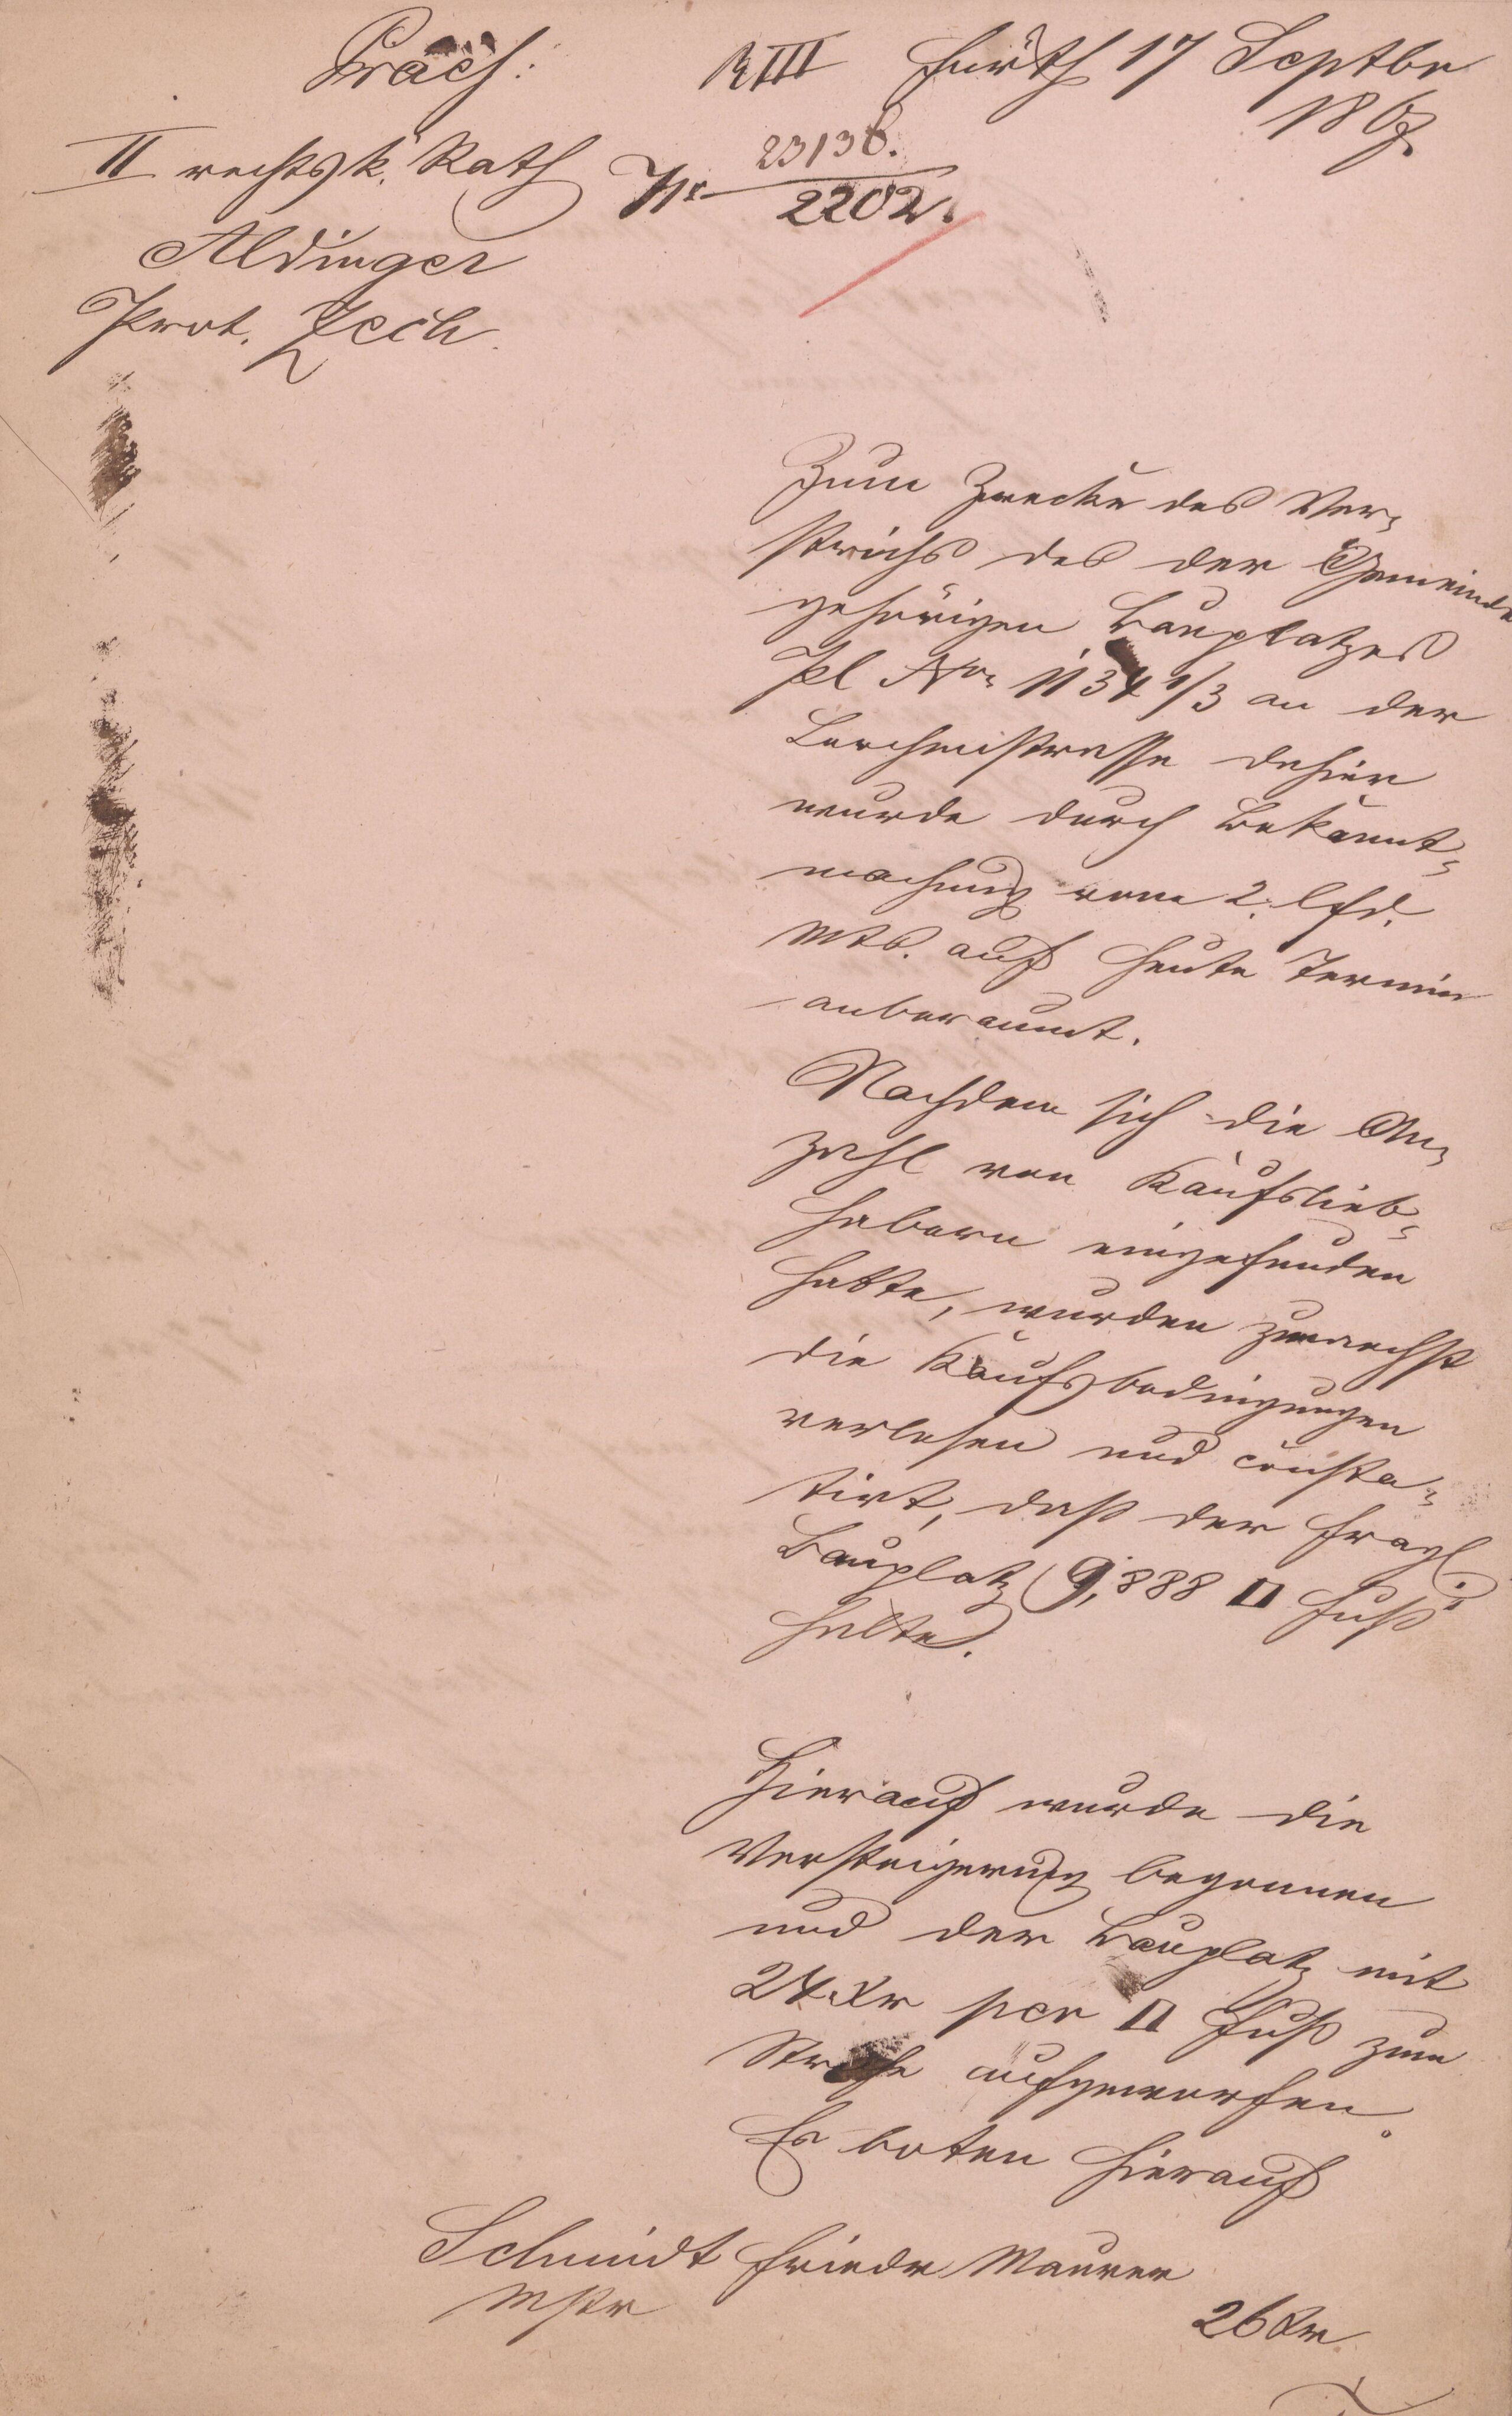 Präs:
II rechtsk. Rath
Aldinger
Prot. Zech.
RIII Fürth 17 Septbr
1867.
Nr 23138.
2202.
Zum Zwecke des Ver-
strichs des der Gemeinde
gehörigen Bauplatzes
Pl Nro 1134 1/3 an der
Lerchenstrasse dahier
wurde durch Bekannt-
machung vom 2. lfd.
Mts. auf heute Termin
anberaumt.
Nachdem sich die An-
zahl von Kaufslieb-
habern eingefunden
hatte, wurden zunaechst
die Kaufsbedingungen
verlesen und consta-
tirt, daß der fragl.
Bauplatz 9,888 □ Fuß
halte.
Hierauf wurde die
Versteigerung begonnen
und der Bauplatz mit
24 Kr per □ Fuß zum
Striche aufgeworfen.
Es boten hierauf
Schmidt Friedr Maurer
Mstr
26 Kr.